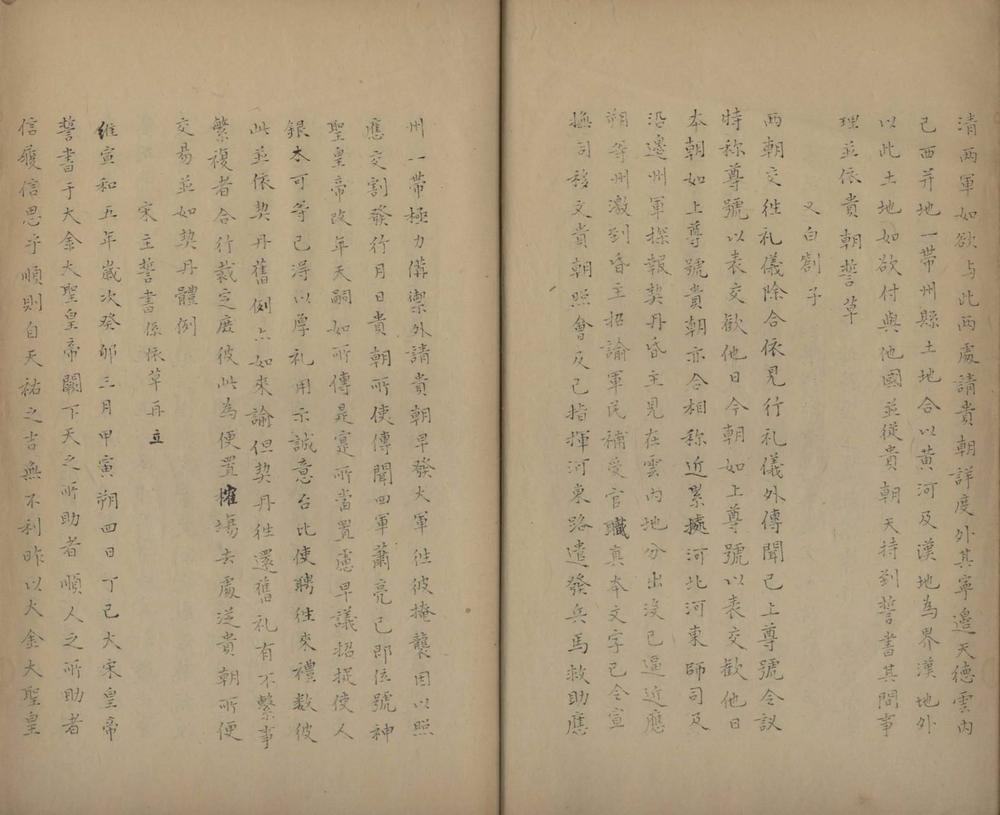 清两軍如欲与此两處請貴朝詳度外其寧邉天德雲内
己西并地一帶州縣土地合以黄河及漢地為界漢地外
以此土地如欲付與他國並從貴朝天持到誓書其間事
理並依貴朝誓草
又白劄子
两朝交徃礼儀除合依見行礼儀外傳聞已上尊號今議
時称尊號以表交歡他日今朝如上尊號以表交歡他日
本朝如上尊號貴朝亦合相称近累據河北河東師司及
沿邉州軍探報契丹昏主見在雲内地分出没已逼近應
朔等州激到昏主招諭軍民補受官職真本文字已令宣
撫司移文貴朝照會及己指揮河東路遣發兵馬救助應
州一帶極力偹禦外請貴朝早發大軍徃彼掩襲因以照
應交割發行月日貴朝所使傳聞四軍蕭亮已即位號神
聖皇帝改年天嗣如所傳是寔所當置慮早議招捉使人
銀本可等已淂以厚礼用示誠意台比使聘徃來禮数彼
此並依契丹舊例亦如來諭但契丹徃還舊礼有不繫事
繁複者合行裁定庻彼此為便置榷塲去處还貴朝所便
交易並如契丹體例
宋主誓書係依草再立
維宣和五年歲次癸邜三月甲寅朔四日丁己大宋皇帝
誓書于大金大聖皇帝闕下天之所助者順人之所助者
信履信思乎順則自天祐之吉無不利昨以大金大聖皇